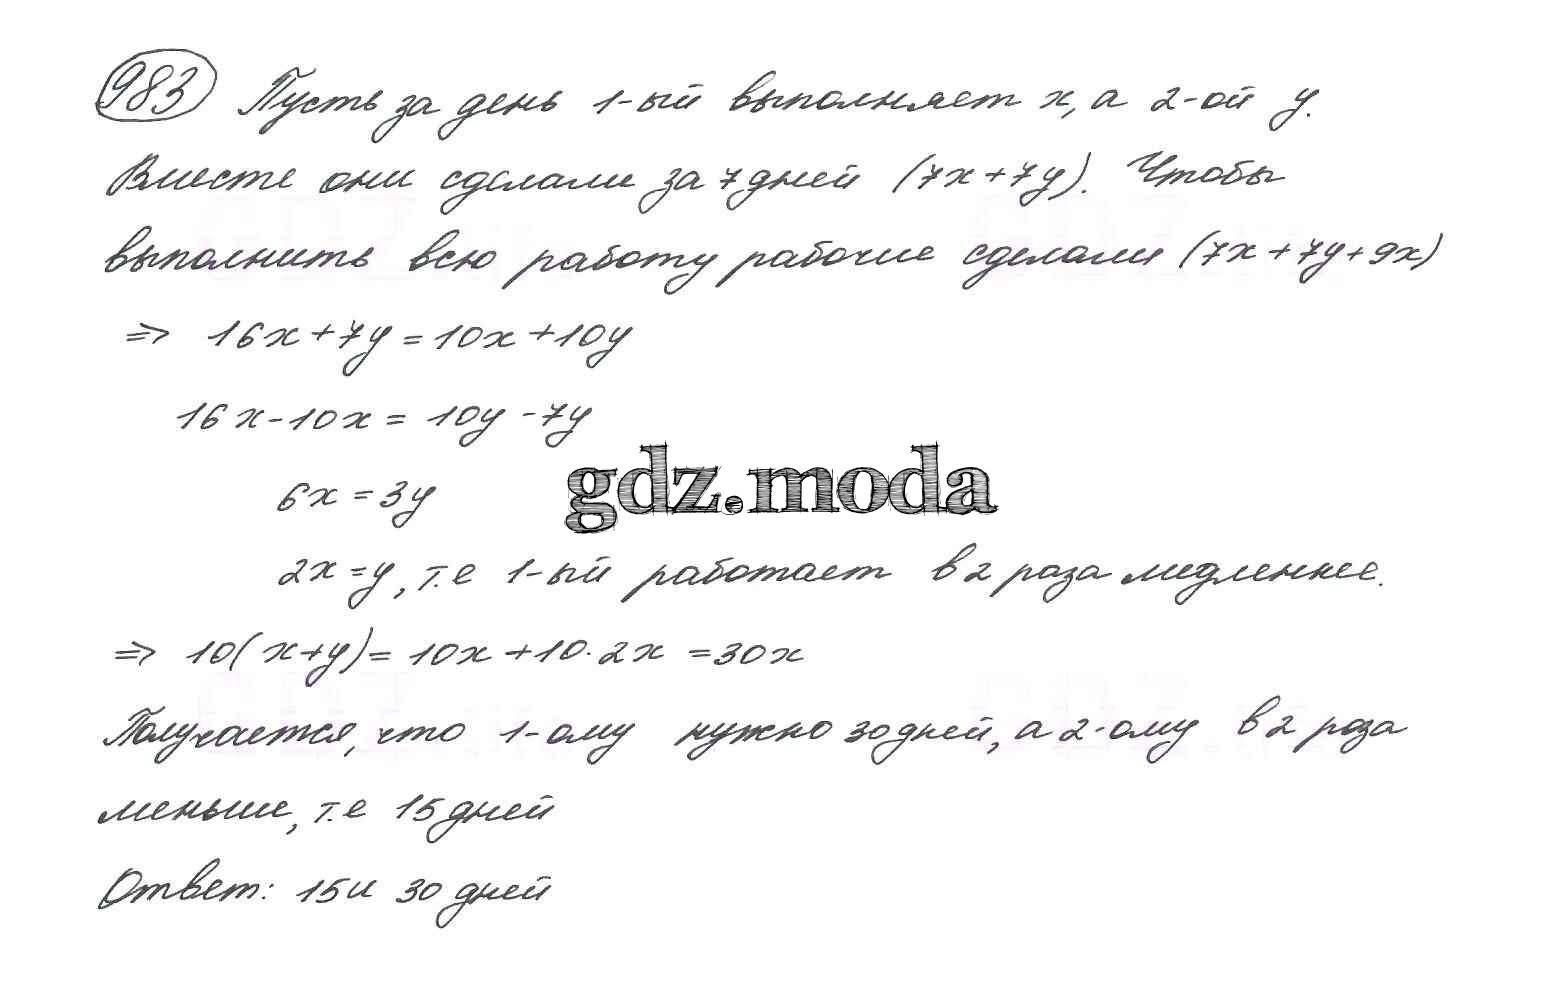 983 Пусть за день 1-ый выполняет x, а 2-ой y.
Вместе они сделали за 7 дней (7x+7y). Чтобы
выполнить всю работу рабочие сделали (7x+7y+9x)
⇒ 16x+7y=10x+10y
16x-10x=10y-7y
6x=3y
gdz.moda
2x=y, т.е 1-ый работает в 2 раза медленнее.
⇒ 10(x+y)=10x+10·2x=30x
Получается, что 1-ому нужно 30 дней, а 2-ому в 2 раза
меньше, т.е 15 дней
Ответ: 15 и 30 дней